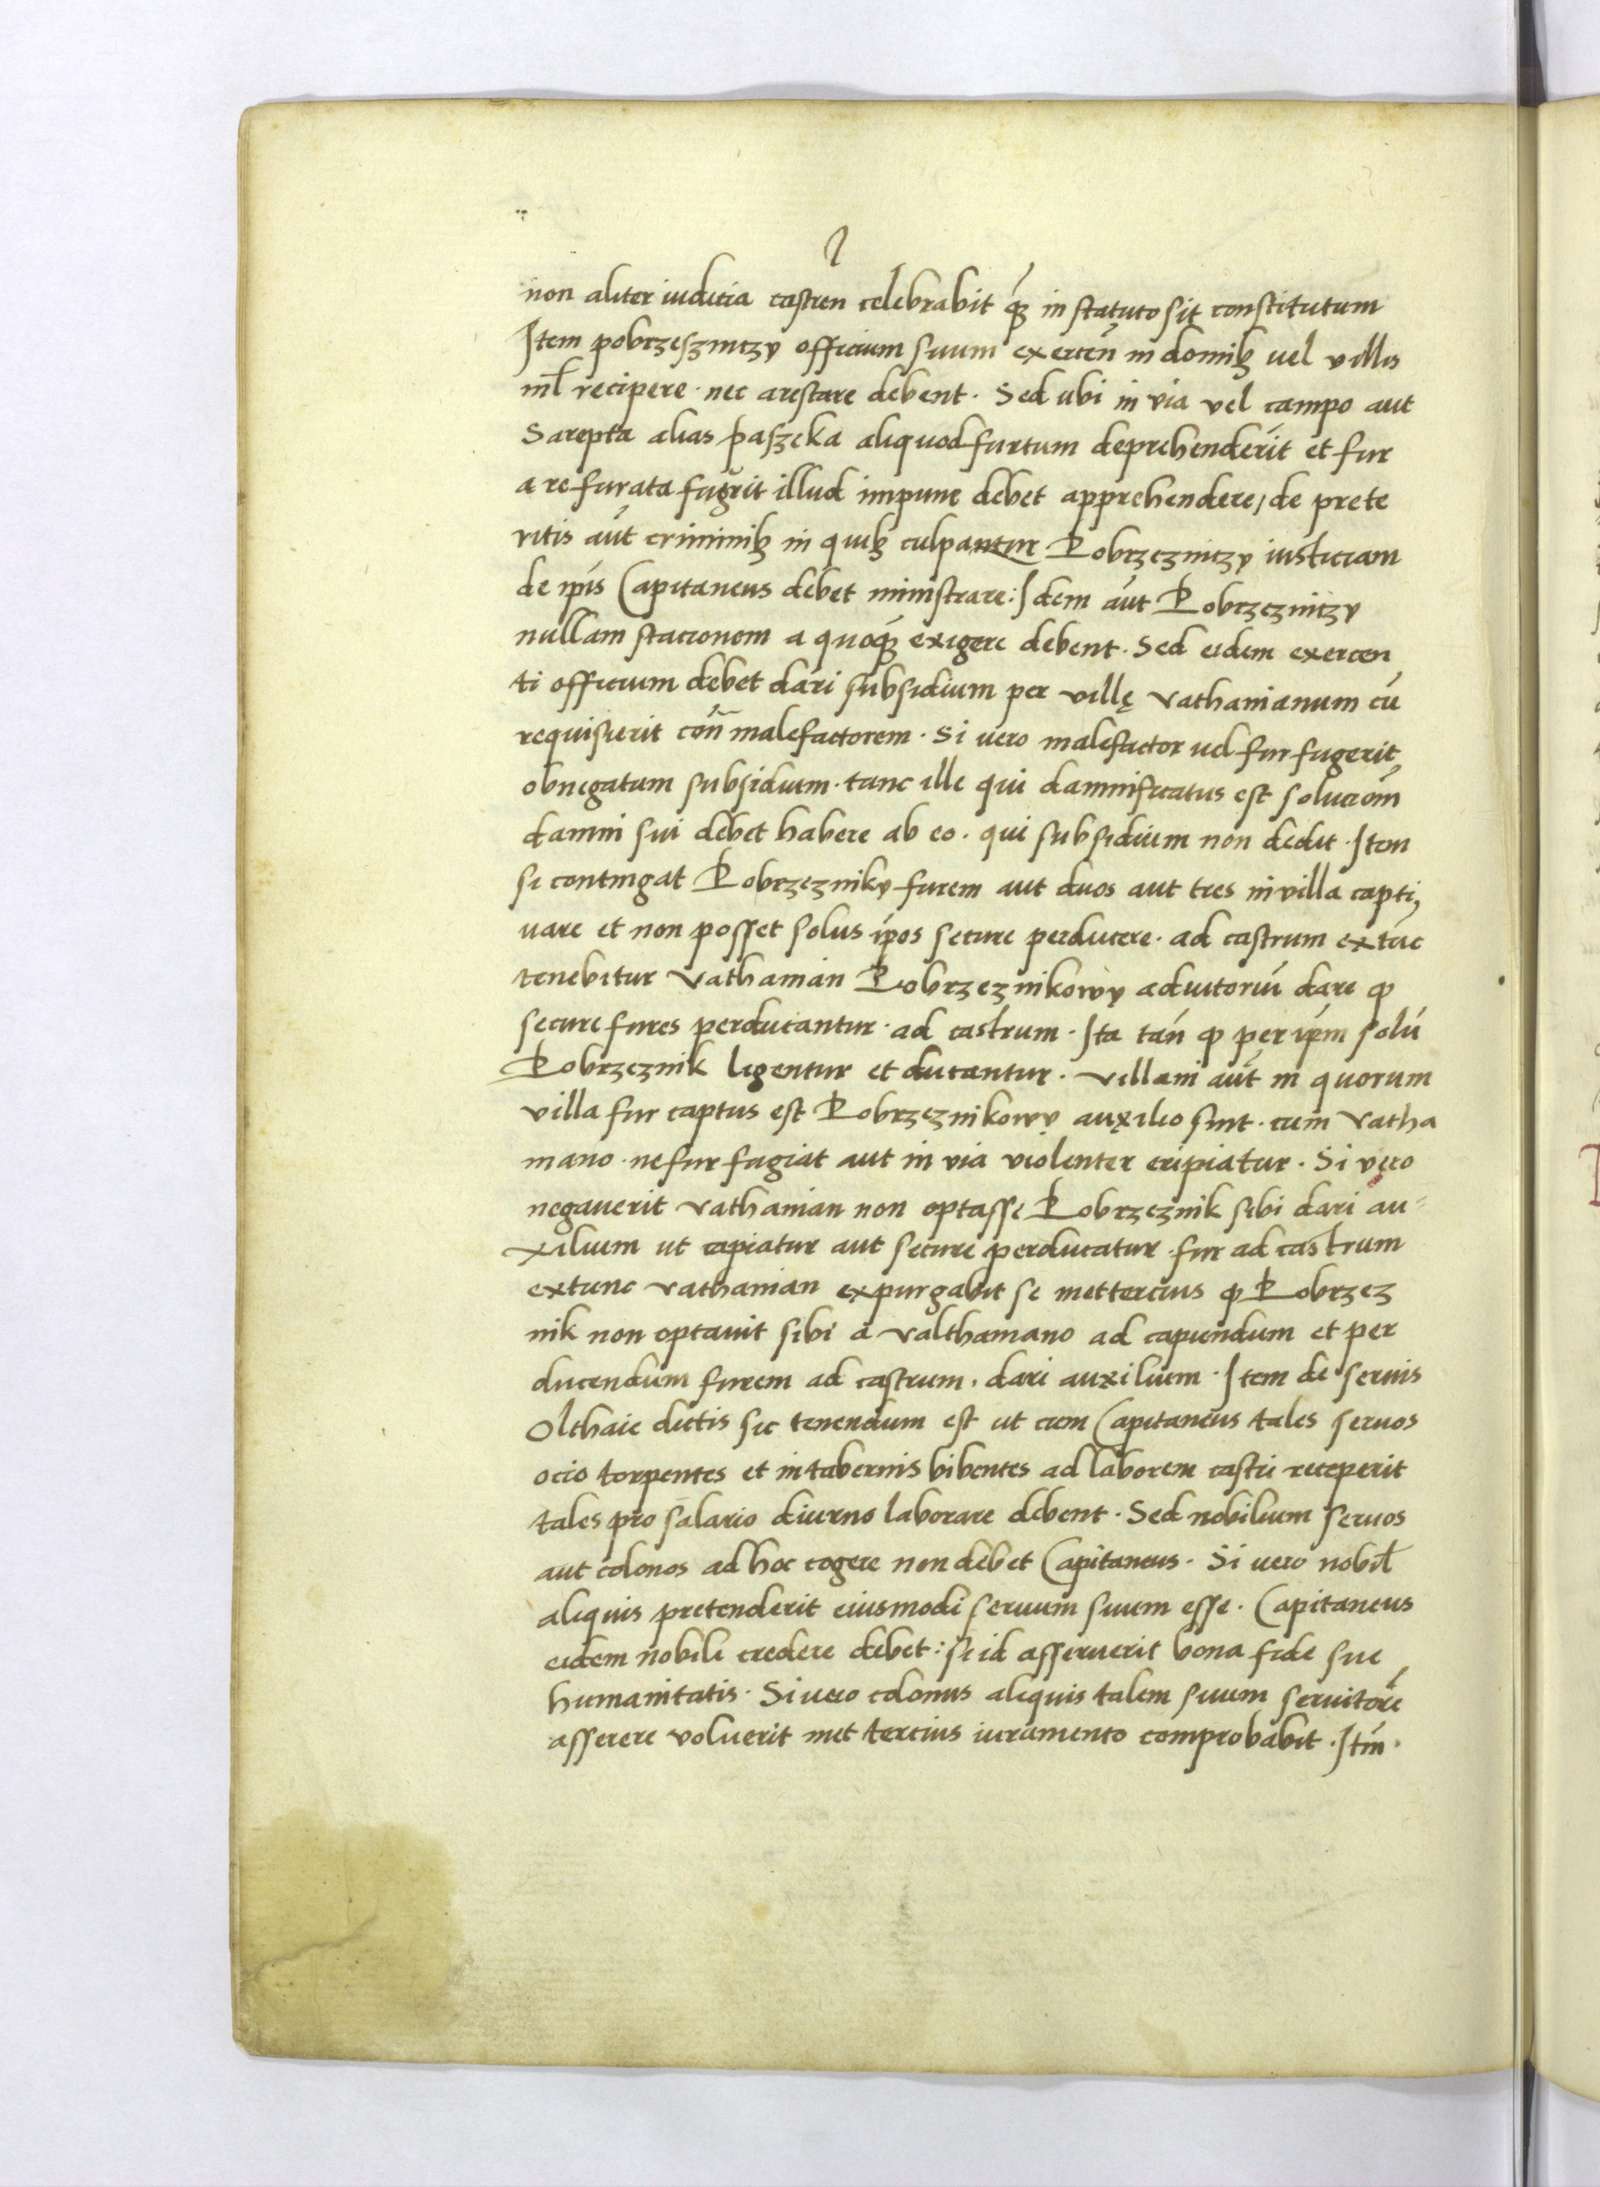 non aliter iudicia castren celebrabit q̃ꝫ in statuto sit constitutum
Item pobrzeszniczy officium suum exercen̄ in domibꝫ uel villis
nil̄ recipere · nec arestare debent · Sed ubi in via vel campo aut
Sarepta alias paszeka aliquod furtum deprehenderit et fur
a re furata fugerit illud impune debet apprehendere, de prete
ritis aut̄ criminibꝫ in quibꝫ culpantur Pobrzezniczy iusticiam
de ip̄is Capitaneus debet ministrare : Idem aut̄ Pobrzezniczy
nullam stacionem a quoq̃ꝫ exigere debent · Sed eidem exercen
ti officium debet dari subsidium per villę vathamanum cū
requisierit con̄ malefactorem · Si uero malefactor uel fur fugerit,
obnegatum subsidium · tunc ille qui damnificatus est solucionē
damni sui debet habere ab eo · qui subsidium non dedit · Item
si contingat Pobrzezniky furem aut duos aut tres in villa capti,
uare et non posset solus ip̄os secure perducere · ad castrum extūc
tenebitur vathaman Pobrzeznikowy adiutoriū dare ꝙ
secure fures perducantur · ad castrum · Ita tan̄ ꝙ per ip̄m solū
Pobrzeznik ligentur et ducantur · villani aut̄ in quorum
villa fur captus est Pobrzeznikowy auxilio sint · cum vatha
mano · ne fur fugiat aut in via violenter eripiatur · Si vero
negauerit vathaman non optasse Pobrzeznik sibi dari au-
xilium ut capiatur aut secure perducatur · fur ad castrum
extunc vathaman expurgabit se mettercius ꝙ Pobrzez
nik non optauit sibi a valthamano ad capiendum et per
ducendum furem ad castrum · dari auxilium · Item de seruis
Olthaie dictis sic tenendum est ut cum Capitaneus tales seruos
ocio torpentes et in tabernis bibentes ad laborem castri receperit
tales pro salario diurno laborare debent · Sed nobilium seruos
aut colonos ad hoc cogere non debet Capitaneus · Si uero nobil̄
aliquis pretenderit eiusmodi seruum suum esse · Capitaneus
eidem nobili credere debet : si id asseruerit bona fide sue
humanitatis · Si uero colonus aliquis talem suum seruitorē
asserere voluerit met tercius iuramento comprobabit · Itm̄ ·